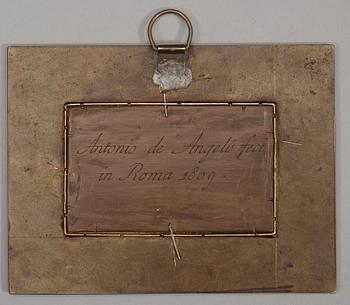 Antonio de Angelis feci
in Roma 1809